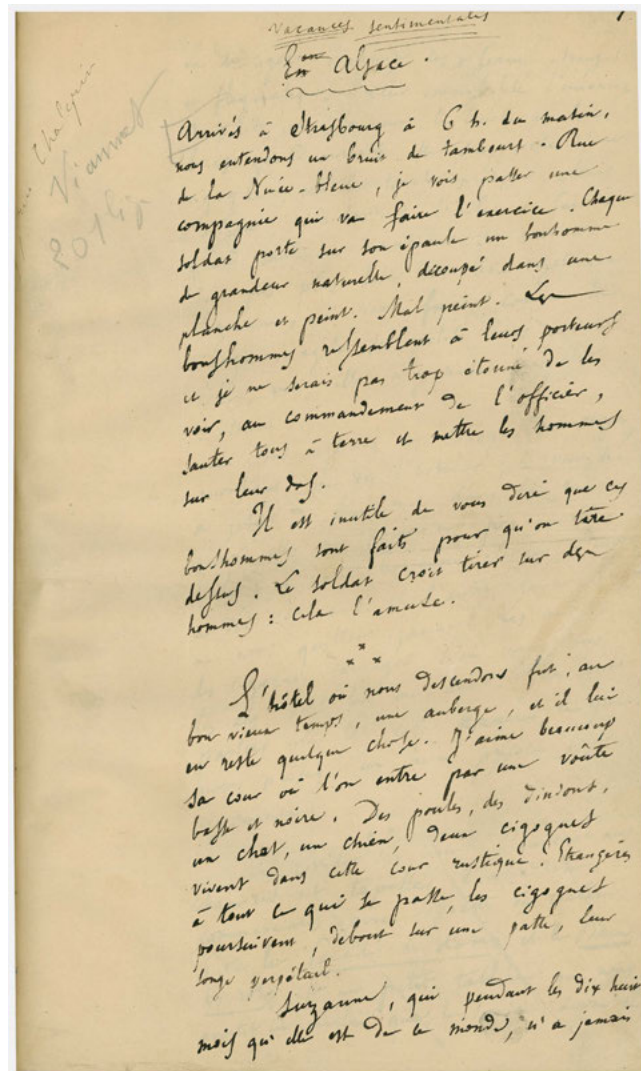 Vacances sentimentales
1.
En Alsace.
Viannet
201
Arrivés à Strasbourg à 6 h. du matin,
nous entendons un bruit de tambours. Rue
de la Nuée-bleue, je vois passer une
compagnie qui va faire l'exercice. Chaque
soldat porte sur son épaule un bonhomme
de grandeur naturelle, découpé dans une
planche et peint. Mal peint. Les
bonshommes ressemblent à leurs porteurs
et je ne serais pas trop étonné de les
voir, au commandement de l'officier,
sauter tous à terre et mettre les hommes
sur leur dos.
Il est inutile de vous dire que ces
bonshommes sont faits pour qu'on tire
dessus. Le soldat croit tirer sur des
hommes : cela l'amuse.
* * *
L'hôtel où nous descendons fut, au
bon vieux temps, une auberge, et il lui
en reste quelque chose. J'aime beaucoup
sa cour où l'on entre par une voûte
basse et noire. Des poules, des dindons,
un chat, un chien, deux cigognes
vivent dans cette cour rustique. Étrangères
à tout ce qui se passe, les cigognes
poursuivent, debout sur une patte, leur
songe perpétuel.
Suzanne, qui pendant les dix huit
mois qu'elle est de ce monde, n'a jamais